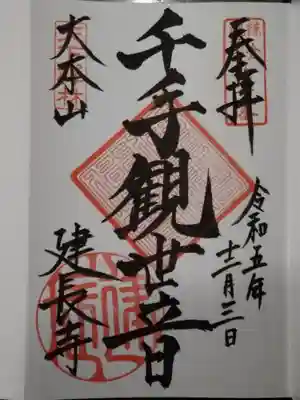 奉拝
令和五年
十二月三日
千手観世音
大本山
建長寺